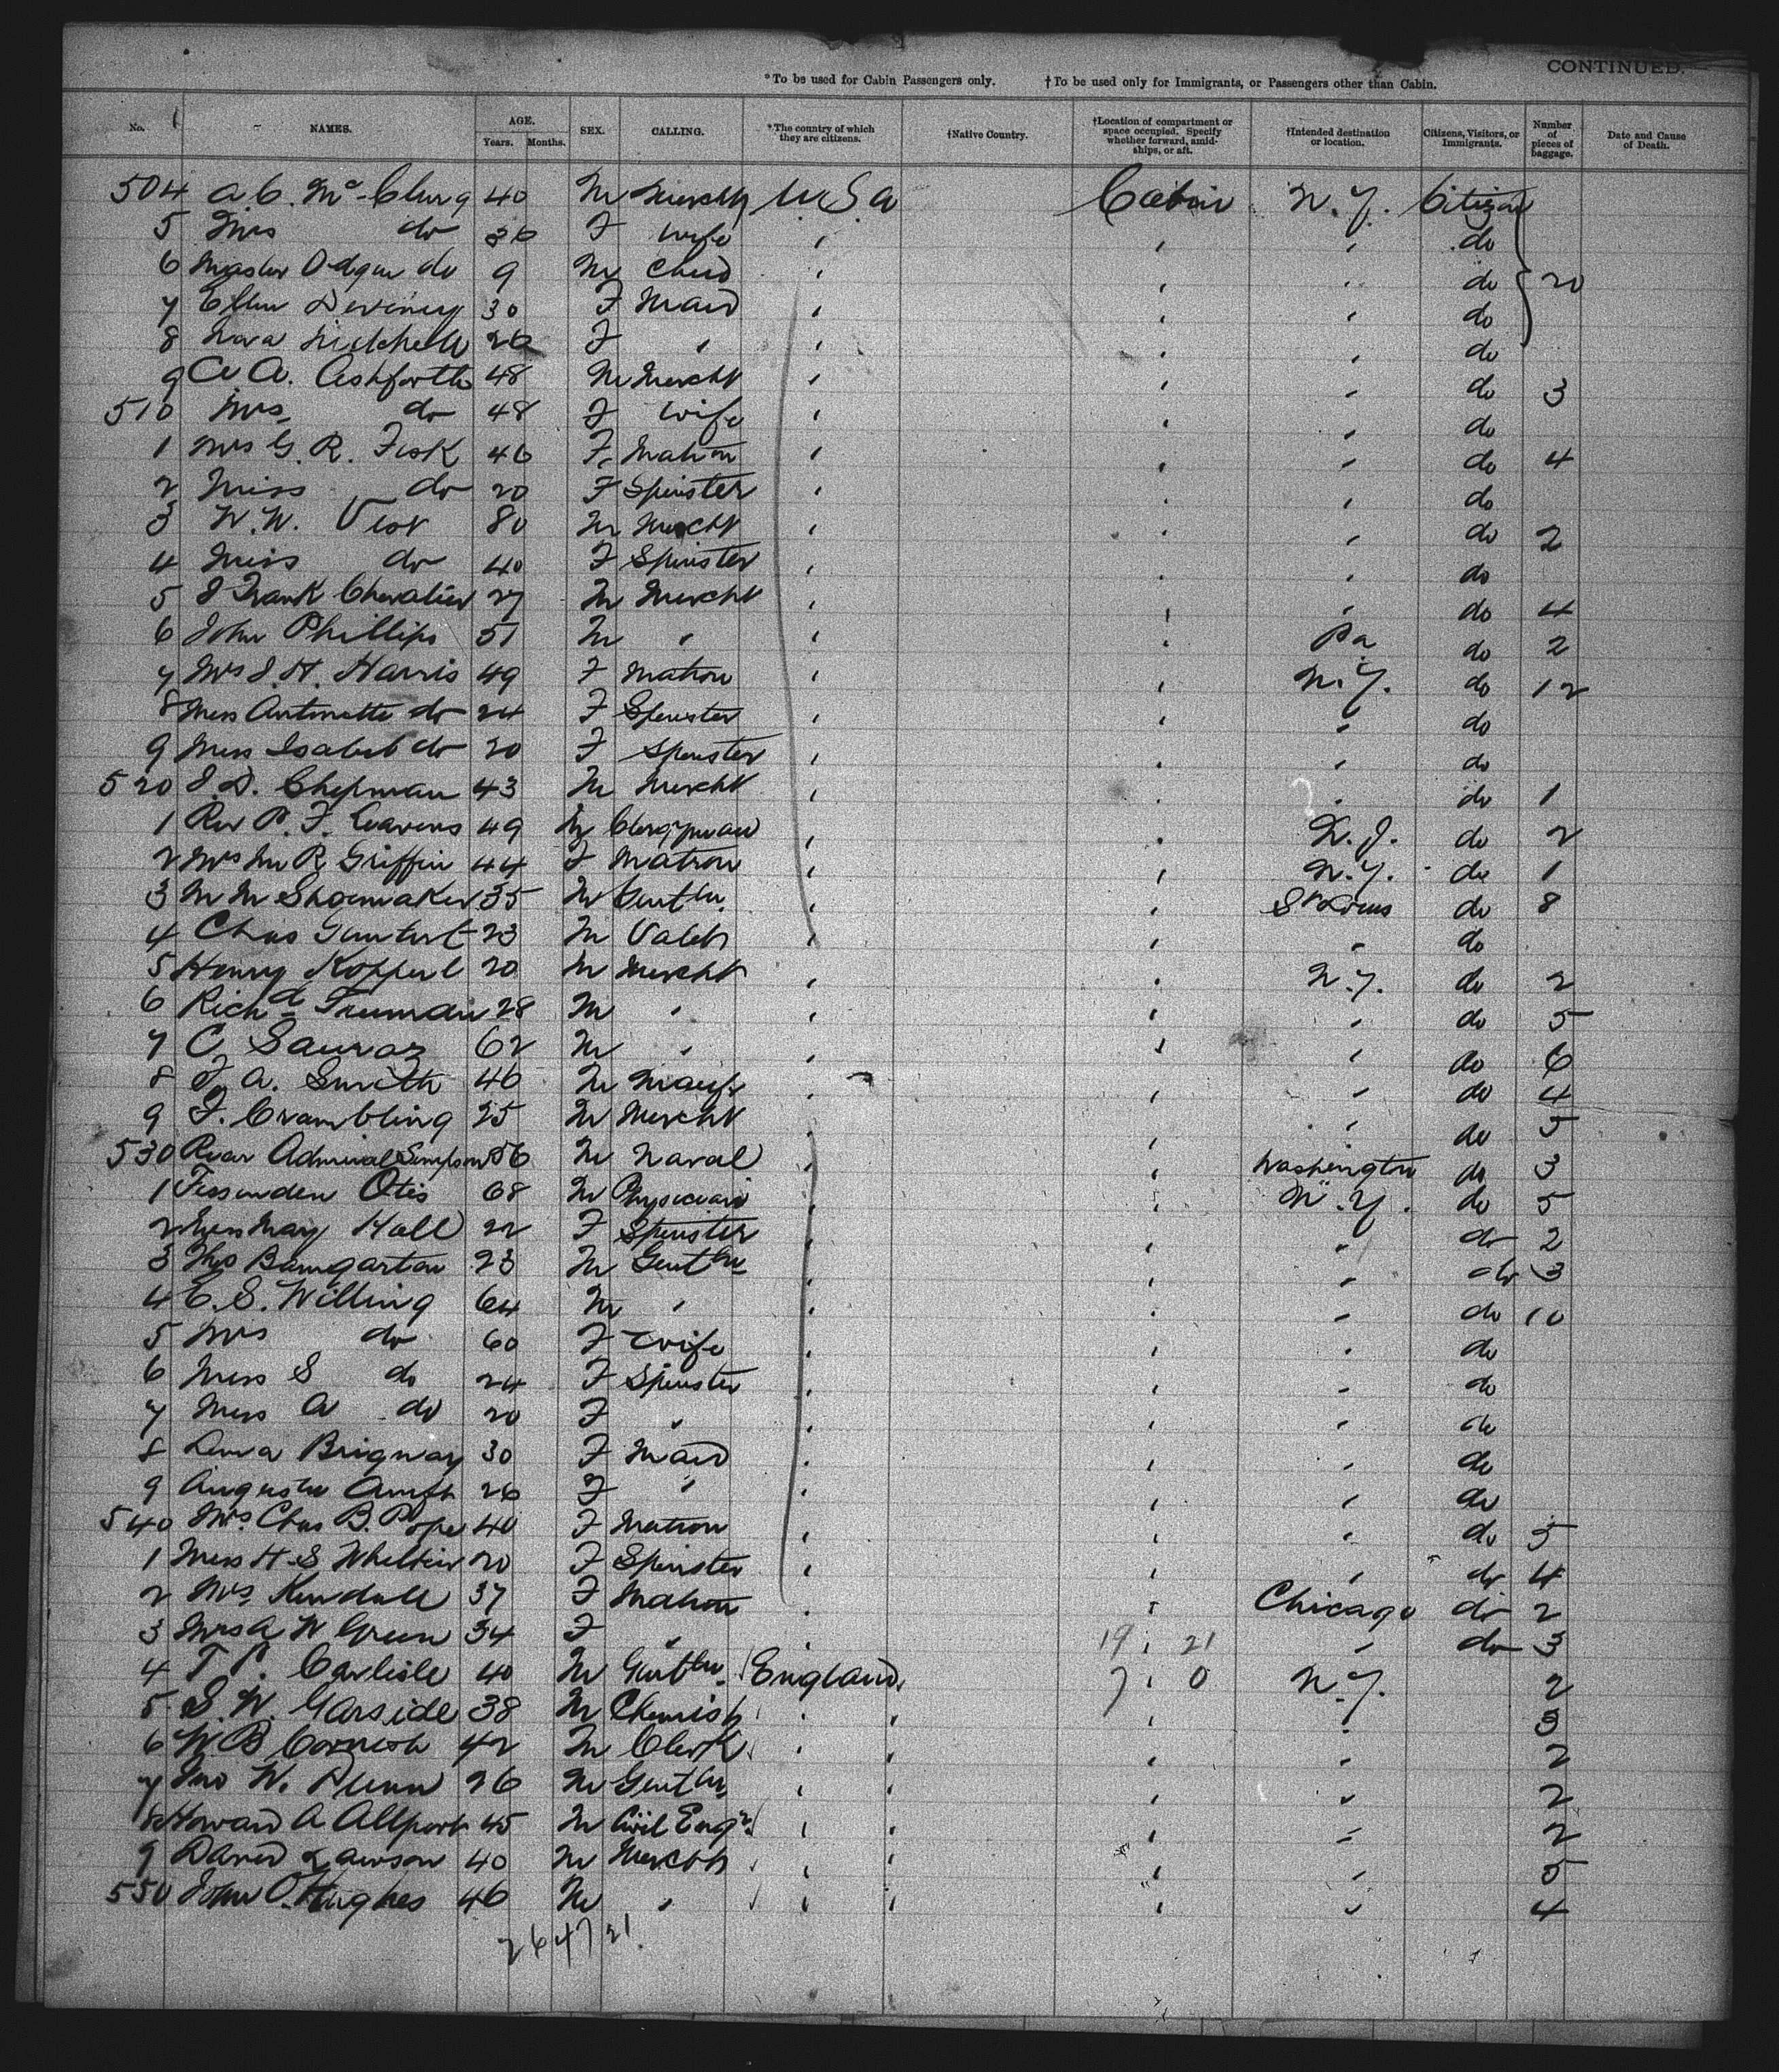 CONTINUED.
*To be used for Cabin Passengers only. †To be used only for Immigrants, or Passengers other than Cabin.
No. NAMES. AGE. Years. Months. SEX. CALLING. *The country of which they are citizens. †Native Country. †Location of compartment or space occupied. Specify whether forward, amidships, or aft. †Intended destination or location. Citizens, Visitors, or Immigrants. Number of pieces of baggage. Date and Cause of Death.
504 A C. Mc Clurg 40 M Mercht U S A Cabin N.Y. Citizen
5 Mrs do 36 F Wife " " " do
6 Master Odgen do 9 M Child " " " do 20
7 Ellen Deviney 30 F Maid " " " do
8 Nora Mitchell 26 F " " " " do
9 A. Ashforth 48 M Mercht " " " do 3
510 Mrs do 48 F Wife " " " do
1 Mrs G. R. Fisk 46 F Matron " " " do 4
2 Miss do 20 F Spinster " " " do
3 W. W. 80 M Mercht " " " do 2
4 Miss do 40 F Spinster " " " do
5 J Frank Chevalier 27 M Mercht " " " do 4
6 John Phillips 51 M " " " Pa do 2
7 Mrs J. H. Harris 49 F Matron " " N.Y. do 12
8 Miss Antinette do 24 F Spinster " " " do
9 Miss Isabel do 20 F Spinster " " " do
520 J. D. Chepman 43 M Mercht " " " do 1
1 Rev P. F. Leavens 49 M Clergyman " " N.J. do 2
2 Mrs M R Griffin 44 F Matron " " N.Y. do 1
3 M M Shoemaker 35 M Gentln. " " St Louis do 8
4 Chas 23 M Valet " " " do
5 Henry Kopperl 20 M Mercht " " N.Y. do 2
6 Richd Truman 28 M " " " " do 5
7 C Sauvaz 62 M " " " " do 6
8 F. A. Smith 46 M Manfr " " " do 4
9 F. Crambling 25 M Mercht " " " do 5
530 Rear Admiral Simpson 56 M Naval " " Washington do 3
1 Fessenden Otis 68 M Physician " " N.Y. do 5
2 Miss Mary Hall 22 F Spinster " " " do 2
3 Baumgarton 23 M Gentln " " " do 3
4 E. S. Willing 64 M " " " " do 10
5 Mrs do 60 F Wife " " " do
6 Miss S do 24 F Spinster " " " do
7 Miss A do 20 F " " " " do
8 Brignay 30 F Maid " " " do
9 26 F " " " " do
540 Mrs. Chas B. Pope 40 F Matron " " " do 5
1 Miss H. S 20 F Spinster " " " do 4
2 Mrs Kendall 37 F Matron " " Chicago do 2
3 Mrs A W Green 34 F " " 19 " 21 " do 3
4 T P. Carlisle 40 M Gentln. England 7 " 0 N.Y. 2
5 S. W. Garside 38 M Chemist " " " " 3
6 W B Cornish 42 M Clerk " " " " 2
7 Jno W. Dunn 26 M Gentln " " " " 2
8 Howard A Allport 45 M Civil Engr. " " " " 2
9 David Lawson 40 M Mercht " " " " 5
550 John O. Hughes 46 M " " " " " 4
26 47 21